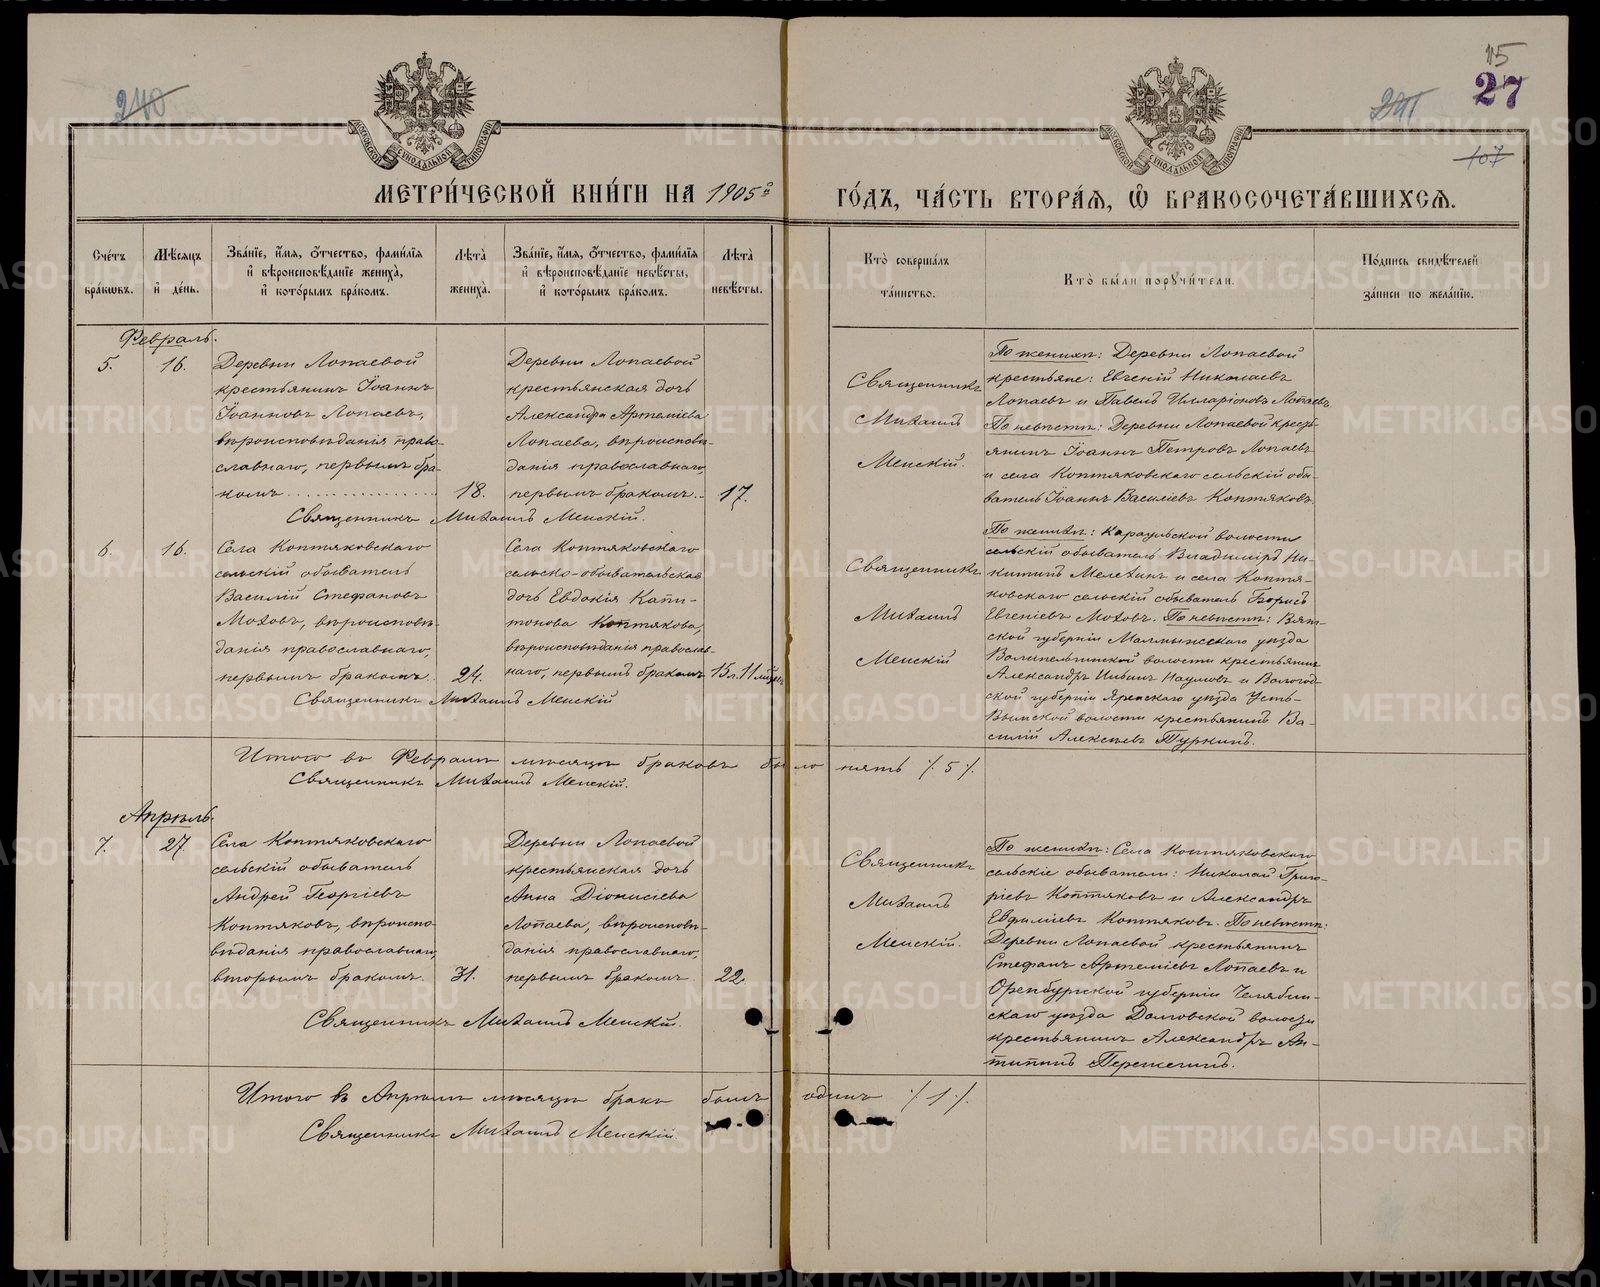 240
291
15
27
107
МОСКОВСКОЙ СѴНОДАЛЬНОЙ ТИПОГРАФІИ
МОСКОВСКОЙ СѴНОДАЛЬНОЙ ТИПОГРАФІИ
МЕТРИ́ЧЕСКОЙ КНИ́ГИ НА 1905й
ГО́ДЪ, ЧА́СТЬ ВТОРА́Ѧ, Ѽ БРАКОСОЧЕТА́ВШИХСѦ.
Сче́тъ бра́кѡвъ.
Мѣ́сѧцъ и҆ де́нь.
Зва́нїе, и҆́мѧ, ѻ҆́тчество, фами́лїѧ и҆ вѣроисповѣ́данїе жениха̀, и҆ кото́рымъ бра́комъ.
Лѣ́та жениха̀.
Зва́нїе, и҆́мѧ, ѻ҆́тчество, фами́лїѧ и҆ вѣроисповѣ́данїе невѣ́сты, и҆ кото́рымъ бра́комъ.
Лѣ́та невѣ́сты.
Кто̀ соверша́лъ та́инство.
Кто̀ бы́ли поручи́тели.
По́дпись свидѣ́телей за́писи по жела́нїю.
Февраль.
5.
16.
Деревни Лопаевой
крестьянинъ Іоаннъ
Іоанновъ Лопаевъ,
вѣроисповѣданія право-
славнаго, первымъ бра-
комъ
18.
Деревни Лопаевой
крестьянская дочь
Александра Артеміева
Лопаева, вѣроисповѣ-
данія православнаго,
первымъ бракомъ.
17.
Священникъ
Михаилъ
Менскій.
По женихѣ: Деревни Лопаевой
крестьяне: Евгеній Николаевъ
Лопаевъ и Павелъ Илларіоновъ Лопаевъ.
По невѣстѣ: Деревни Лопаевой кресть-
янинъ Іоаннъ Петровъ Лопаевъ
и села Коптяковскаго сельскій обы-
ватель Іоаннъ Василіевъ Коптяковъ.
Священникъ Михаилъ Менскій.
6.
16.
Села Коптяковскаго
сельскій обыватель
Василій Стефановъ
Моховъ, вѣроисповѣ-
данія православнаго,
первымъ бракомъ.
24.
Села Коптяковскаго
сельско-обывательская
дочь Евдокія Капи-
тонова Коптякова,
вѣроисповѣданія православ-
наго, первымъ бракомъ
15 л. 11 мѣсяц.
Священникъ
Михаилъ
Менскій
По женихѣ: Караульской волости
сельскій обыватель Владиміръ Ни-
китинъ Мелехинъ и села Коптя-
ковскаго сельскій обыватель Борисъ
Евгеніевъ Моховъ. По невѣстѣ: Вят-
ской губерніи Малмыжскаго уѣзда
Волипельгинской волости крестьянинъ
Александръ Ивинъ Наумовъ и Вологод-
ской губерніи Яренскаго уѣзда Усть-
Вымской волости крестьянинъ Ва-
силій Алексѣевъ Туркинъ.
Священникъ Михаилъ Менскій
Итого въ Февралѣ мѣсяцѣ браковъ было пять /. 5 /.
Священникъ Михаилъ Менскій.
Апрѣль.
7.
27.
Села Коптяковскаго
сельскій обыватель
Андрей Георгіевъ
Коптяковъ, вѣроиспо-
вѣданія православнаго,
вторымъ бракомъ.
31.
Деревни Лопаевой
крестьянская дочь
Анна Діонисіева
Лопаева, вѣроисповѣ-
данія православнаго,
первымъ бракомъ
22.
Священникъ
Михаилъ
Менскій.
По женихѣ: Села Коптяковскаго
сельскіе обыватели: Николай Григо-
ріевъ Коптяковъ и Александръ
Евфиміевъ Коптяковъ. По невѣстѣ:
Деревни Лопаевой крестьянинъ
Стефанъ Артеміевъ Лопаевъ и
Оренбургской губерніи Челябин-
скаго уѣзда Долговской волости
крестьянинъ Александръ Ан-
типинъ Пережегинъ.
Священникъ Михаилъ Менскій.
Итого въ Апрѣлѣ мѣсяцѣ бракъ былъ одинъ /. 1 /.
Священникъ Михаилъ Менскій.
METRIKI.GASO-URAL.RU